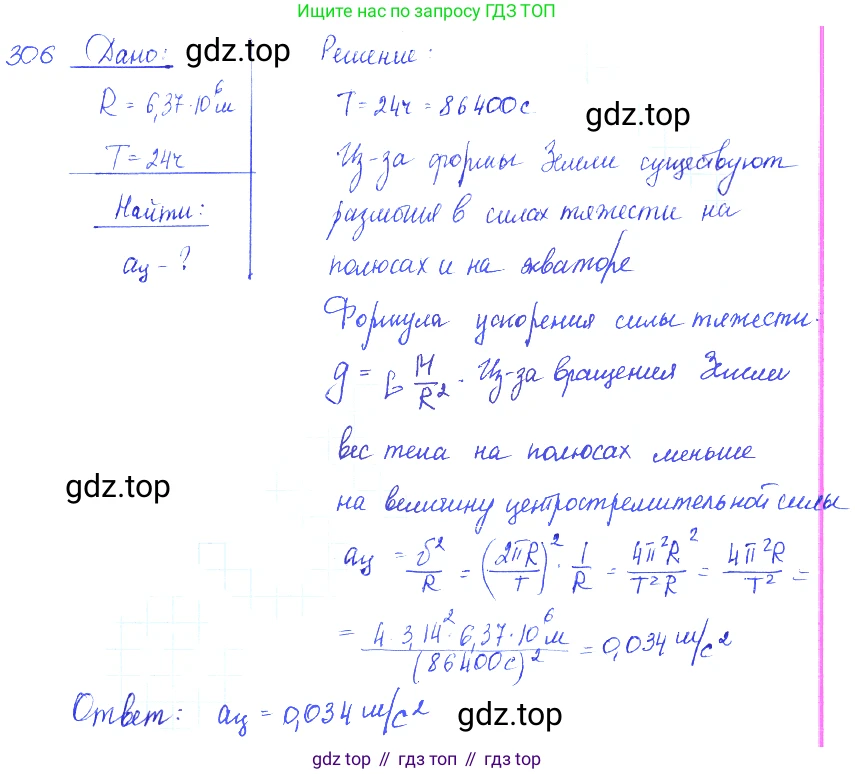 Ищите нас по запросу ГДЗ ТОП
306 Дано: gdz.top Решение:
R = 6,37·10⁶м
T = 24ч = 86400с
gdz.top
T = 24ч
Из-за формы Земли существуют
Найти:
различия в силах тяжести на
aц - ?
полюсах и на экваторе
Формула ускорения силы тяжести.
g = G M/R². Из-за вращения Земли
вес тела на полюсах меньше
gdz.top
на величину центростремительной силы
aц = v²/R = (2πR/T)² · 1/R = 4π²R²/T²R = 4π²R/T² =
= 4·3,14²·6,37·10⁶м/(86400с)² = 0,034 м/с²
Ответ: aц = 0,034 м/с² gdz.top
gdz top // гдз топ // gdz.top